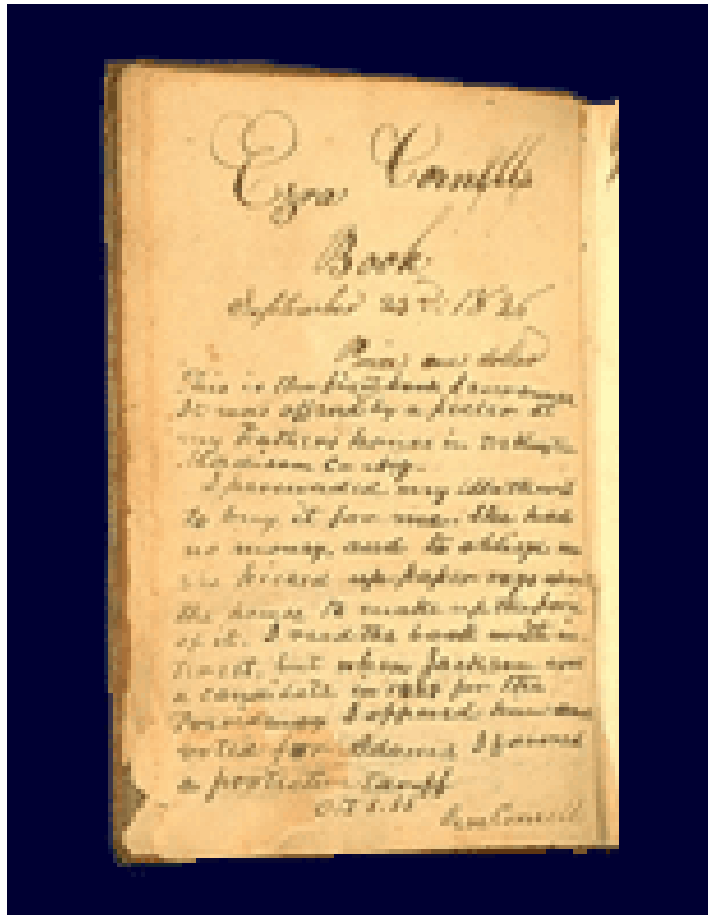 Ezra Cornells
Book
September 23d. 1826
Price one dollar
This is the first book I ever
It was offered by a at
my Fathers house in
Madison Co
I persuaded my Mother
to buy it for me. She had
no money, and to oblige
picked up paper rags
the house to make up the
of it. I read the book with
but when Jackson
a candidate in for the
I opposed him
voted for Adams I
a protective Tariff
Ezra Cornell